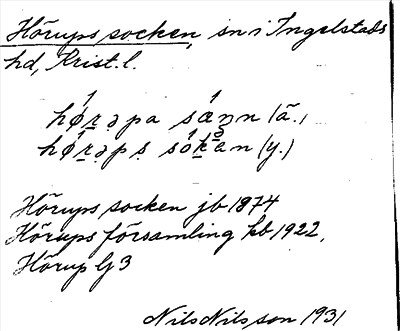 Hörups socken, sn i Ingelstads
hd, Krist. l.
hø̱rəpa sánn (ä.)
hø̱rəps sókan (y.)
Hörups socken jb 1874
Hörups församling kb 1922,
Hörup Gj 3
Nils Nilsson 1931